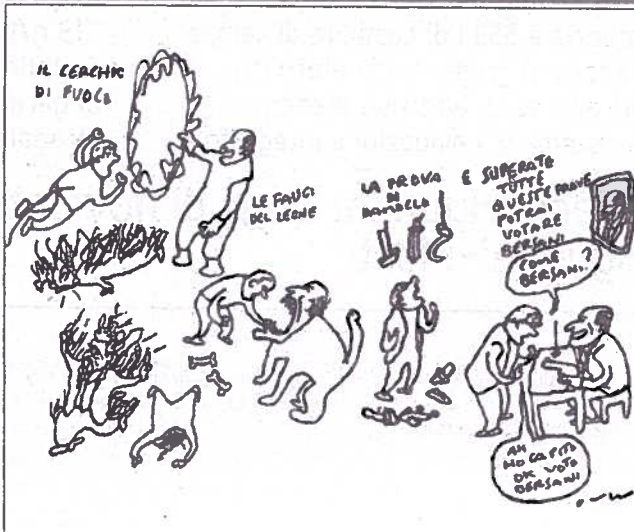 IL CERCHIO
DI FUOCO
LE FAUCI
DEL LEONE
LA PROVA
DI
E SUPERATE
TUTTE
QUESTE PROVE
POTRAI
VOTARE
BERSANI
COME
BERSANI..?
AH
HO CAPITO
OK VOTO
BERSANI